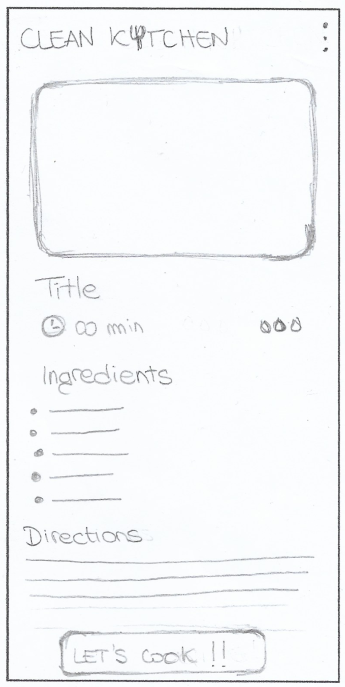 CLEAN KITCHEN
Title
00 min
Ingredients
Directions
LET'S COOK !!